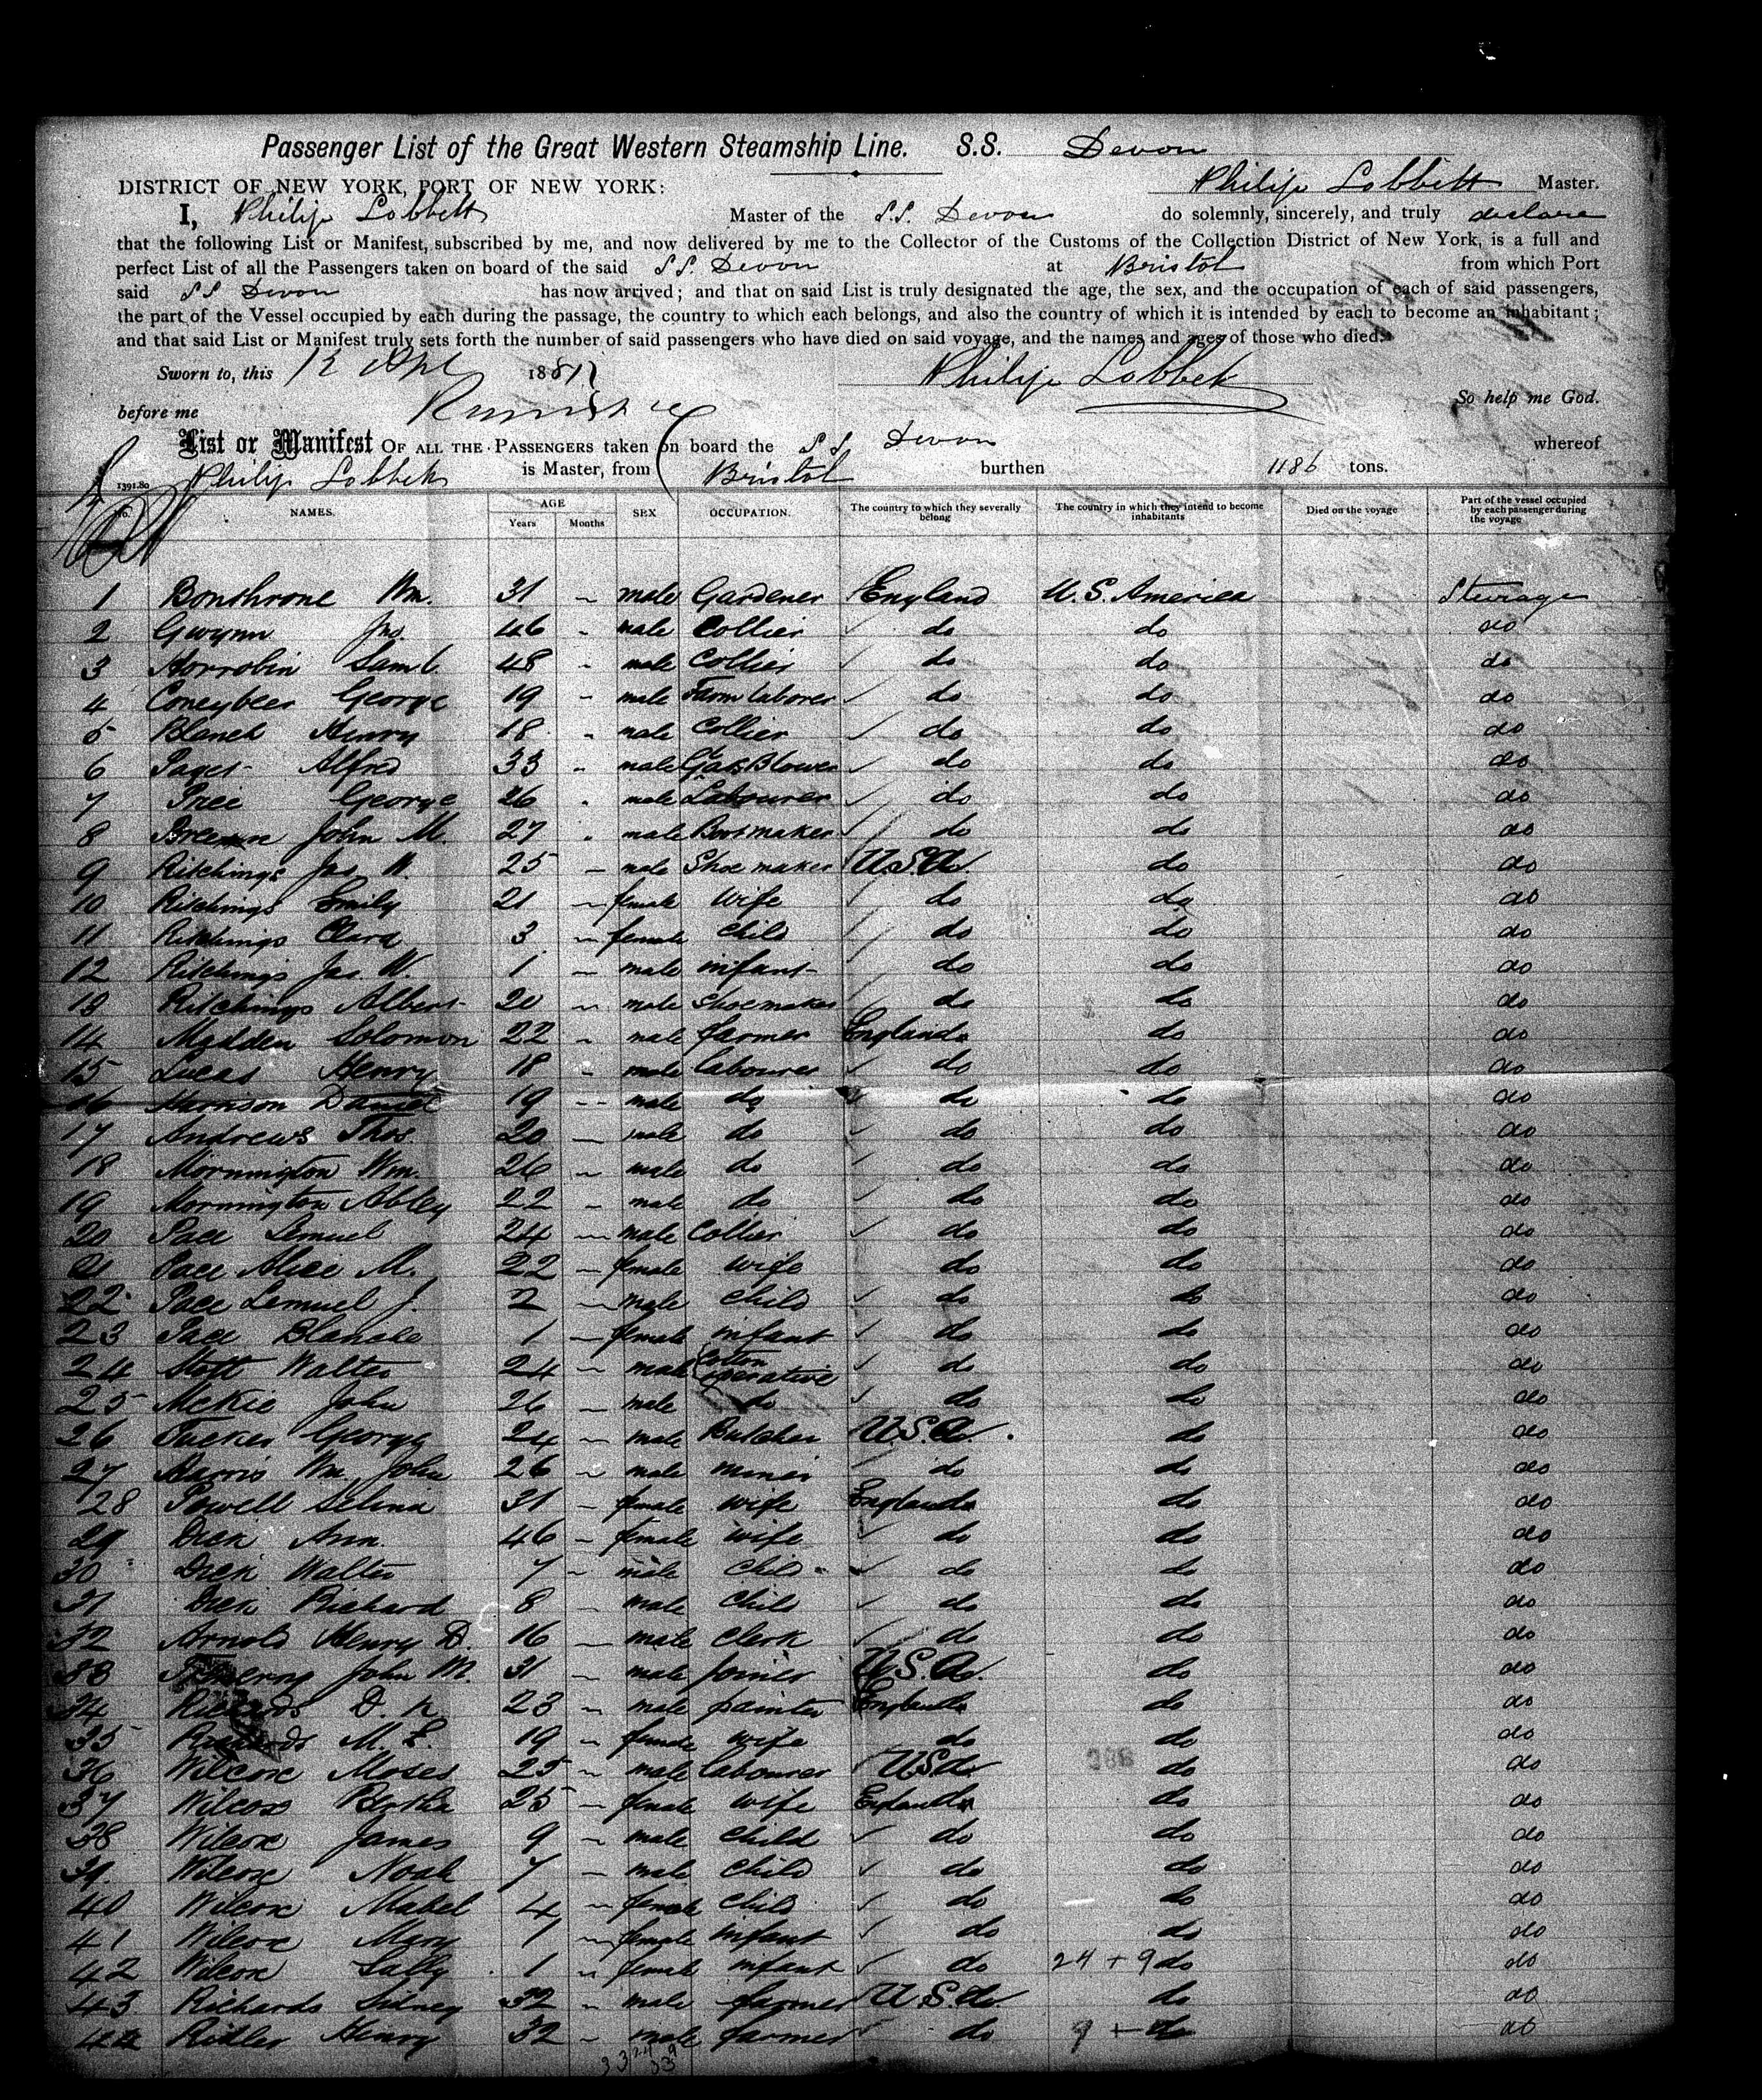 Passenger List of the Great Western Steamship Line. S.S. Devon
DISTRICT OF NEW YORK, PORT OF NEW YORK: Philip Lobbett Master.
I, Philip Lobbett Master of the S.S. Devon do solemnly, sincerely, and truly declare
that the following List or Manifest, subscribed by me, and now delivered by me to the Collector of the Customs of the Collection District of New York, is a full and
perfect List of all the Passengers taken on board of the said S S. Devon at Bristol from which Port
said S S Devon has now arrived; and that on said List is truly designated the age, the sex, and the occupation of each of said passengers,
the part of the Vessel occupied by each during the passage, the country to which each belongs, and also the country of which it is intended by each to become an inhabitant;
and that said List or Manifest truly sets forth the number of said passengers who have died on said voyage, and the names and ages of those who died.
Sworn to, this 12 Apl 1881 Philip Lobbett
before me So help me God.
List or Manifest OF ALL THE PASSENGERS taken on board the S S Devon whereof
1391.80 Philip Lobbett is Master, from Bristol burthen 1186 tons.
No. NAMES. AGE Years Months SEX OCCUPATION. The country to which they severally belong The country in which they intend to become inhabitants Died on the voyage Part of the vessel occupied by each passenger during the voyage
1 Bonthrone Wm. 31 - male Gardener England U.S. America Steerage
2 Gwynn Jno. 46 - male Collier do do do
3 Horrobin Saml. 48 - male Collier do do do
4 Coneybeer George 19 - male Farm laborer do do do
5 Blanch Henry 18 - male Collier do do do
6 Alfred 33 - male do do do
7 George 26 - male Labourer do do do
8 John M. 27 - male Bootmaker do do do
9 Ritchings Jas W. 25 - male Shoe maker U.S.A. do do
10 Ritchings Emily 21 - female Wife do do do
11 Ritchings Clara 3 - female Child do do do
12 Ritchings Jas. W. 1 - male infant do do do
13 Ritchings Albert 20 - male shoemaker do do do
14 Madden Solomon 22 - male farmer England do do
15 Lucas Henry 18 - male labourer do do do
16 Harrison Daniel 19 - male do do do do
17 Andrews Thos. 20 - male do do do do
18 Mornington Wm. 26 - male do do do do
19 Mornington Abley 22 - male do do do do
20 Pace Lemuel 24 - male Collier do do do
21 Pace Alice M. 22 - female wife do do do
22 Pace Lemuel J. 2 - male child do do do
23 Pace Blanche 1 - female infant do do do
24 Stott Walter 24 - male Cotton operative do do do
25 McKie John 26 - male do do do do
26 Tucker George 24 - male Butcher U.S.A. do do
27 Harris Wm. John 26 - male miner do do do
28 Powell Selina 31 - female wife England do do
29 Dick Ann. 46 - female wife do do do
30 Dick Walter 7 - male Child do do do
31 Dick Richard 8 - male Child do do do
32 Arnold Henry D. 16 - male clerk do do do
33 John M. 31 - male joiner U.S.A. do do
34 D. 23 - male painter England do do
35 M. E. 19 - female wife do do do
36 Wilcox Moses 25 - male labourer USA do do
37 Wilcox Bertha 25 - female wife England do do
38 Wilcox James 9 - male child do do do
39. Wilcox Noah 7 - male child do do do
40 Wilcox Mabel 4 - female child do do do
41 Wilcox Mary 1 - female infant do do do
42 Wilcox Sally 1 - female infant do 24 + 9 do do
43 Richards Sidney 32 - male farmer U.S.A. do do
44 Ridler Henry 32 - male farmer do 9 + do do